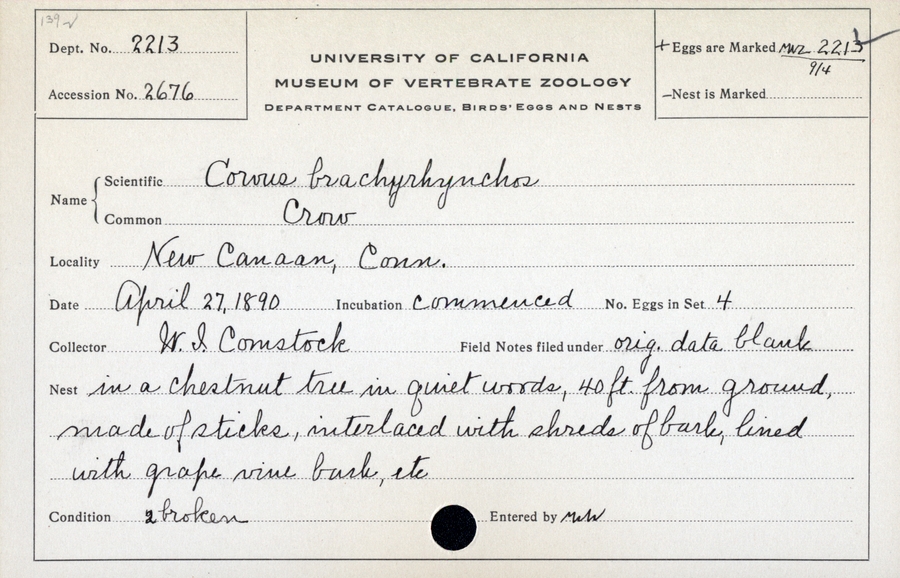 139
Dept. No. 2213
Accession No. 2676
UNIVERSITY OF CALIFORNIA
MUSEUM OF VERTEBRATE ZOOLOGY
DEPARTMENT CATALOGUE, BIRDS' EGGS AND NESTS
+ Eggs are Marked MVZ 2213
9/4
– Nest is Marked
Name
Scientific Corvus brachyrhynchos
Common Crow
Locality New Canaan, Conn.
Date April 27, 1890 Incubation commenced No. Eggs in Set 4
Collector W. I. Comstock Field Notes filed under orig. data blank
Nest in a chestnut tree in quiet woods, 40 ft. from ground,
made of sticks, interlaced with shreds of bark, lined
with grape vine bark, etc
Condition 2 broken Entered by